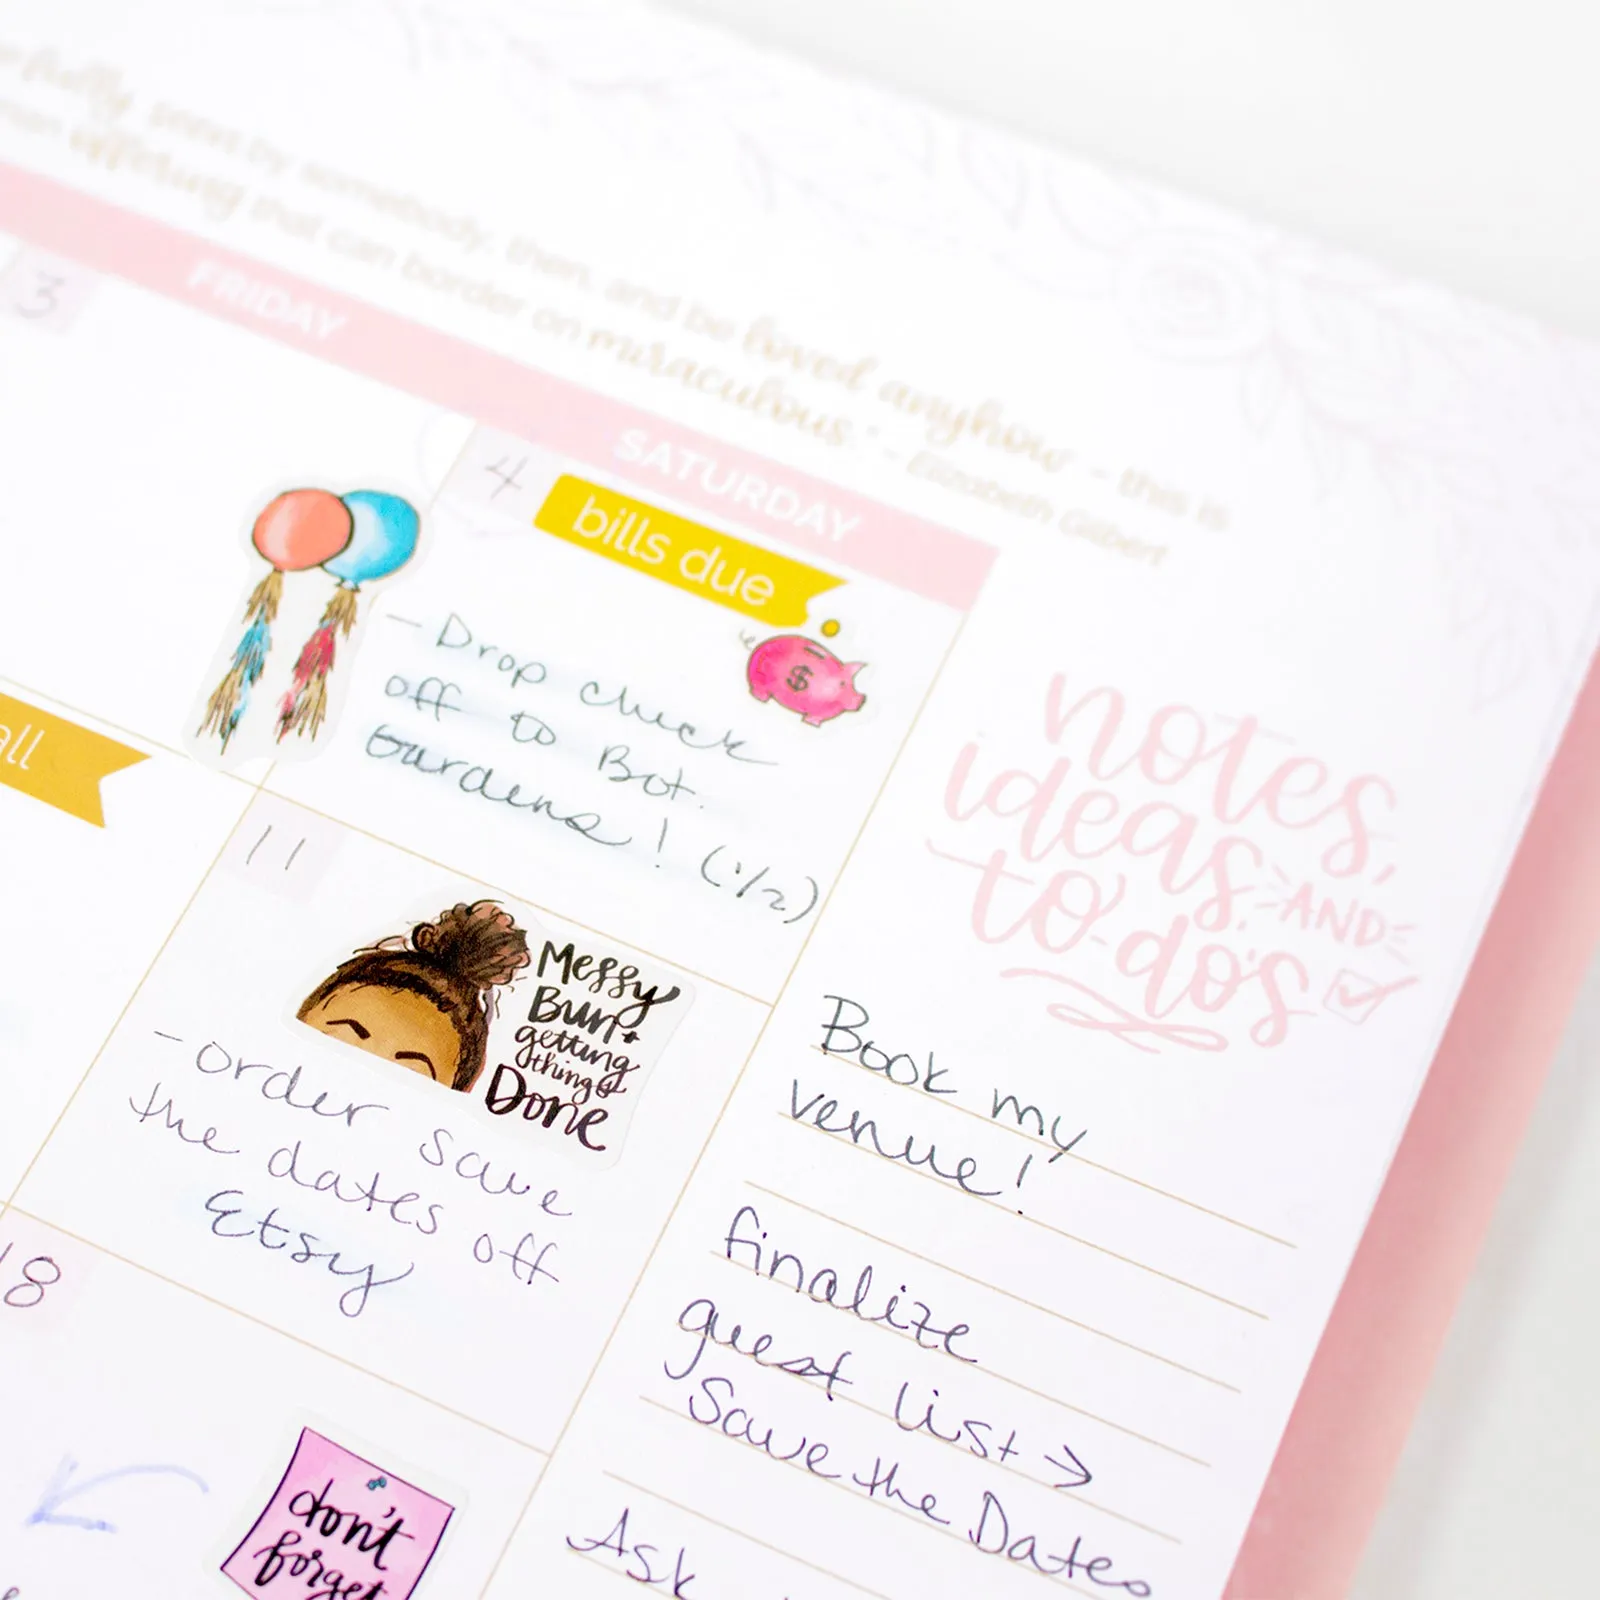 seen by somebody, then, and be loved anyhow – this is
offering that can border on miraculous." – Elizabeth Gilbert
FRIDAY
SATURDAY
3
4
bills due
$
- Drop check
off to Bot.
Gardens! (1/2)
all
11
Messy
Bun +
getting
things
Done
- order save
the dates off
Etsy
18
don't
forget
notes,
ideas,
AND
to-do's
Book my
venue!
finalize
guest list →
Save the Dates
Ask